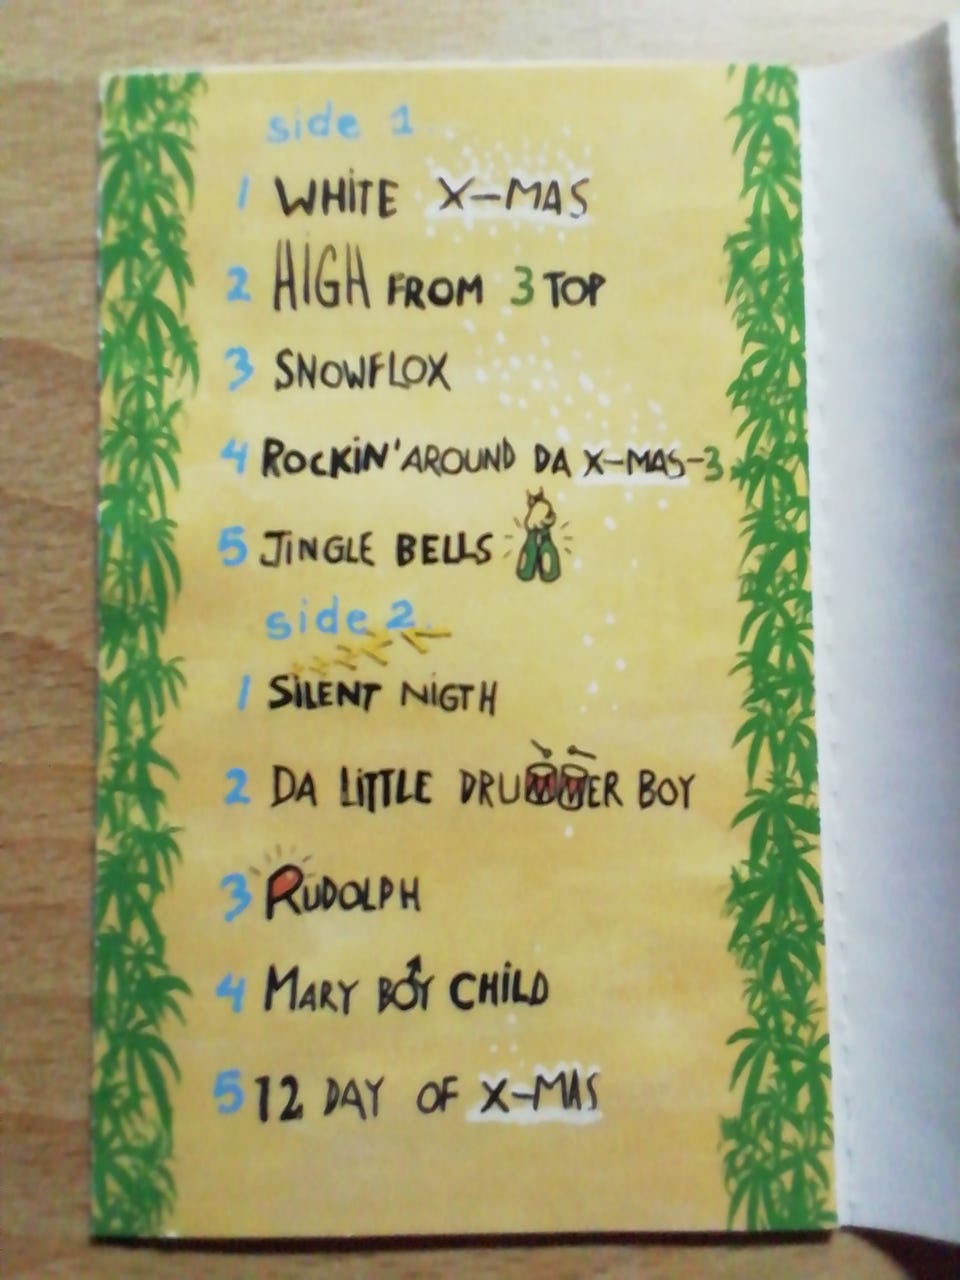 side 1
1 WHiTE X-MAS
2 HIGH FROM 3 TOP
3 SNOWFLOX
4 ROCKiN' AROUND DA X-MAS-3
5 JiNGLE BELLS
side 2
1 SiLENT NiGTH
2 DA LiTTLE DRUMMER BOY
3 RUDOLPH
4 MARY BOY CHiLD
5 12 DAY OF X-MAS